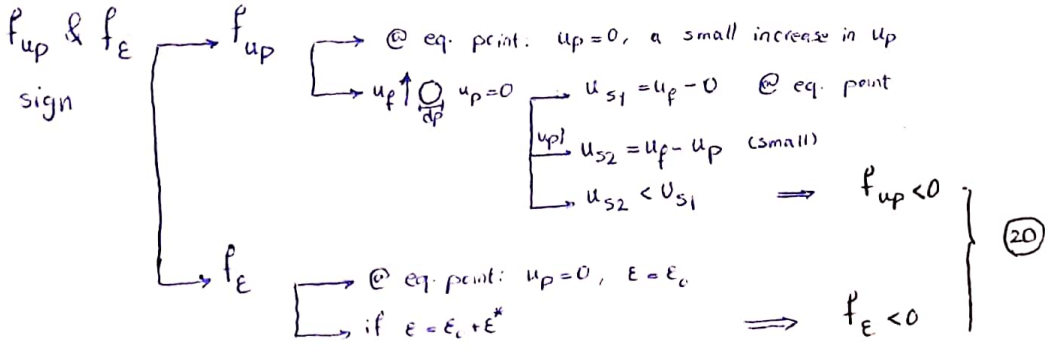 f_up & f_ε sign
f_up
@ eq. point: u_p = 0, a small increase in u_p
u_f ↑ u_p = 0
d_p
u_s1 = u_f - 0 @ eq. point
u_p↑ u_s2 = u_f - u_p (small)
u_s2 < u_s1 ⇒ f_up < 0
(20)
f_ε
@ eq. point: u_p = 0, ε = ε_0
if ε = ε_0 + ε* ⇒ f_ε < 0